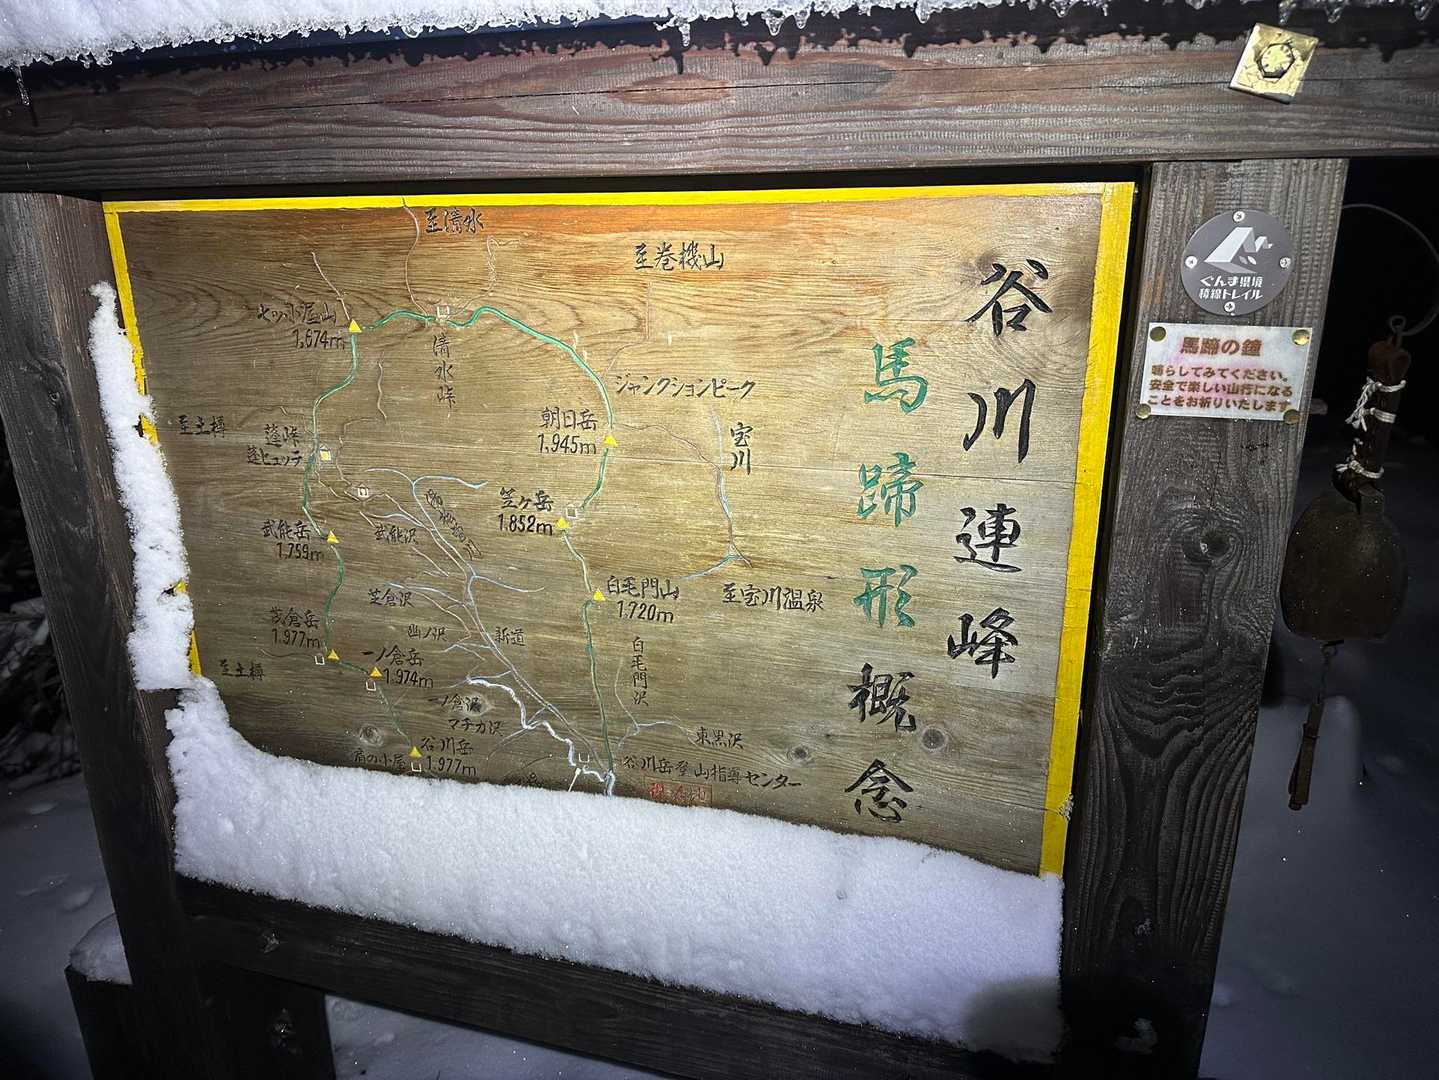 谷川連峰
馬蹄形概念
至清水
至巻機山
七ッ小屋山
1,674m
清水峠
ジャンクションピーク
朝日岳
1,945m
宝川
至土樽
蓬峠
蓬ヒュッテ
笠ヶ岳
1,852m
武能岳
1,759m
武能沢
白毛門山
1,720m
至宝川温泉
芝倉沢
茂倉岳
1,977m
幽ノ沢
新道
白毛門沢
至土樽
一ノ倉岳
1,974m
一ノ倉沢
マチガ沢
東黒沢
谷川岳
1,977m
肩の小屋
谷川岳登山指導センター
ぐんま県境
稜線トレイル
馬蹄の鐘
鳴らしてみてください。
安全で楽しい山行になる
ことをお祈りいたします